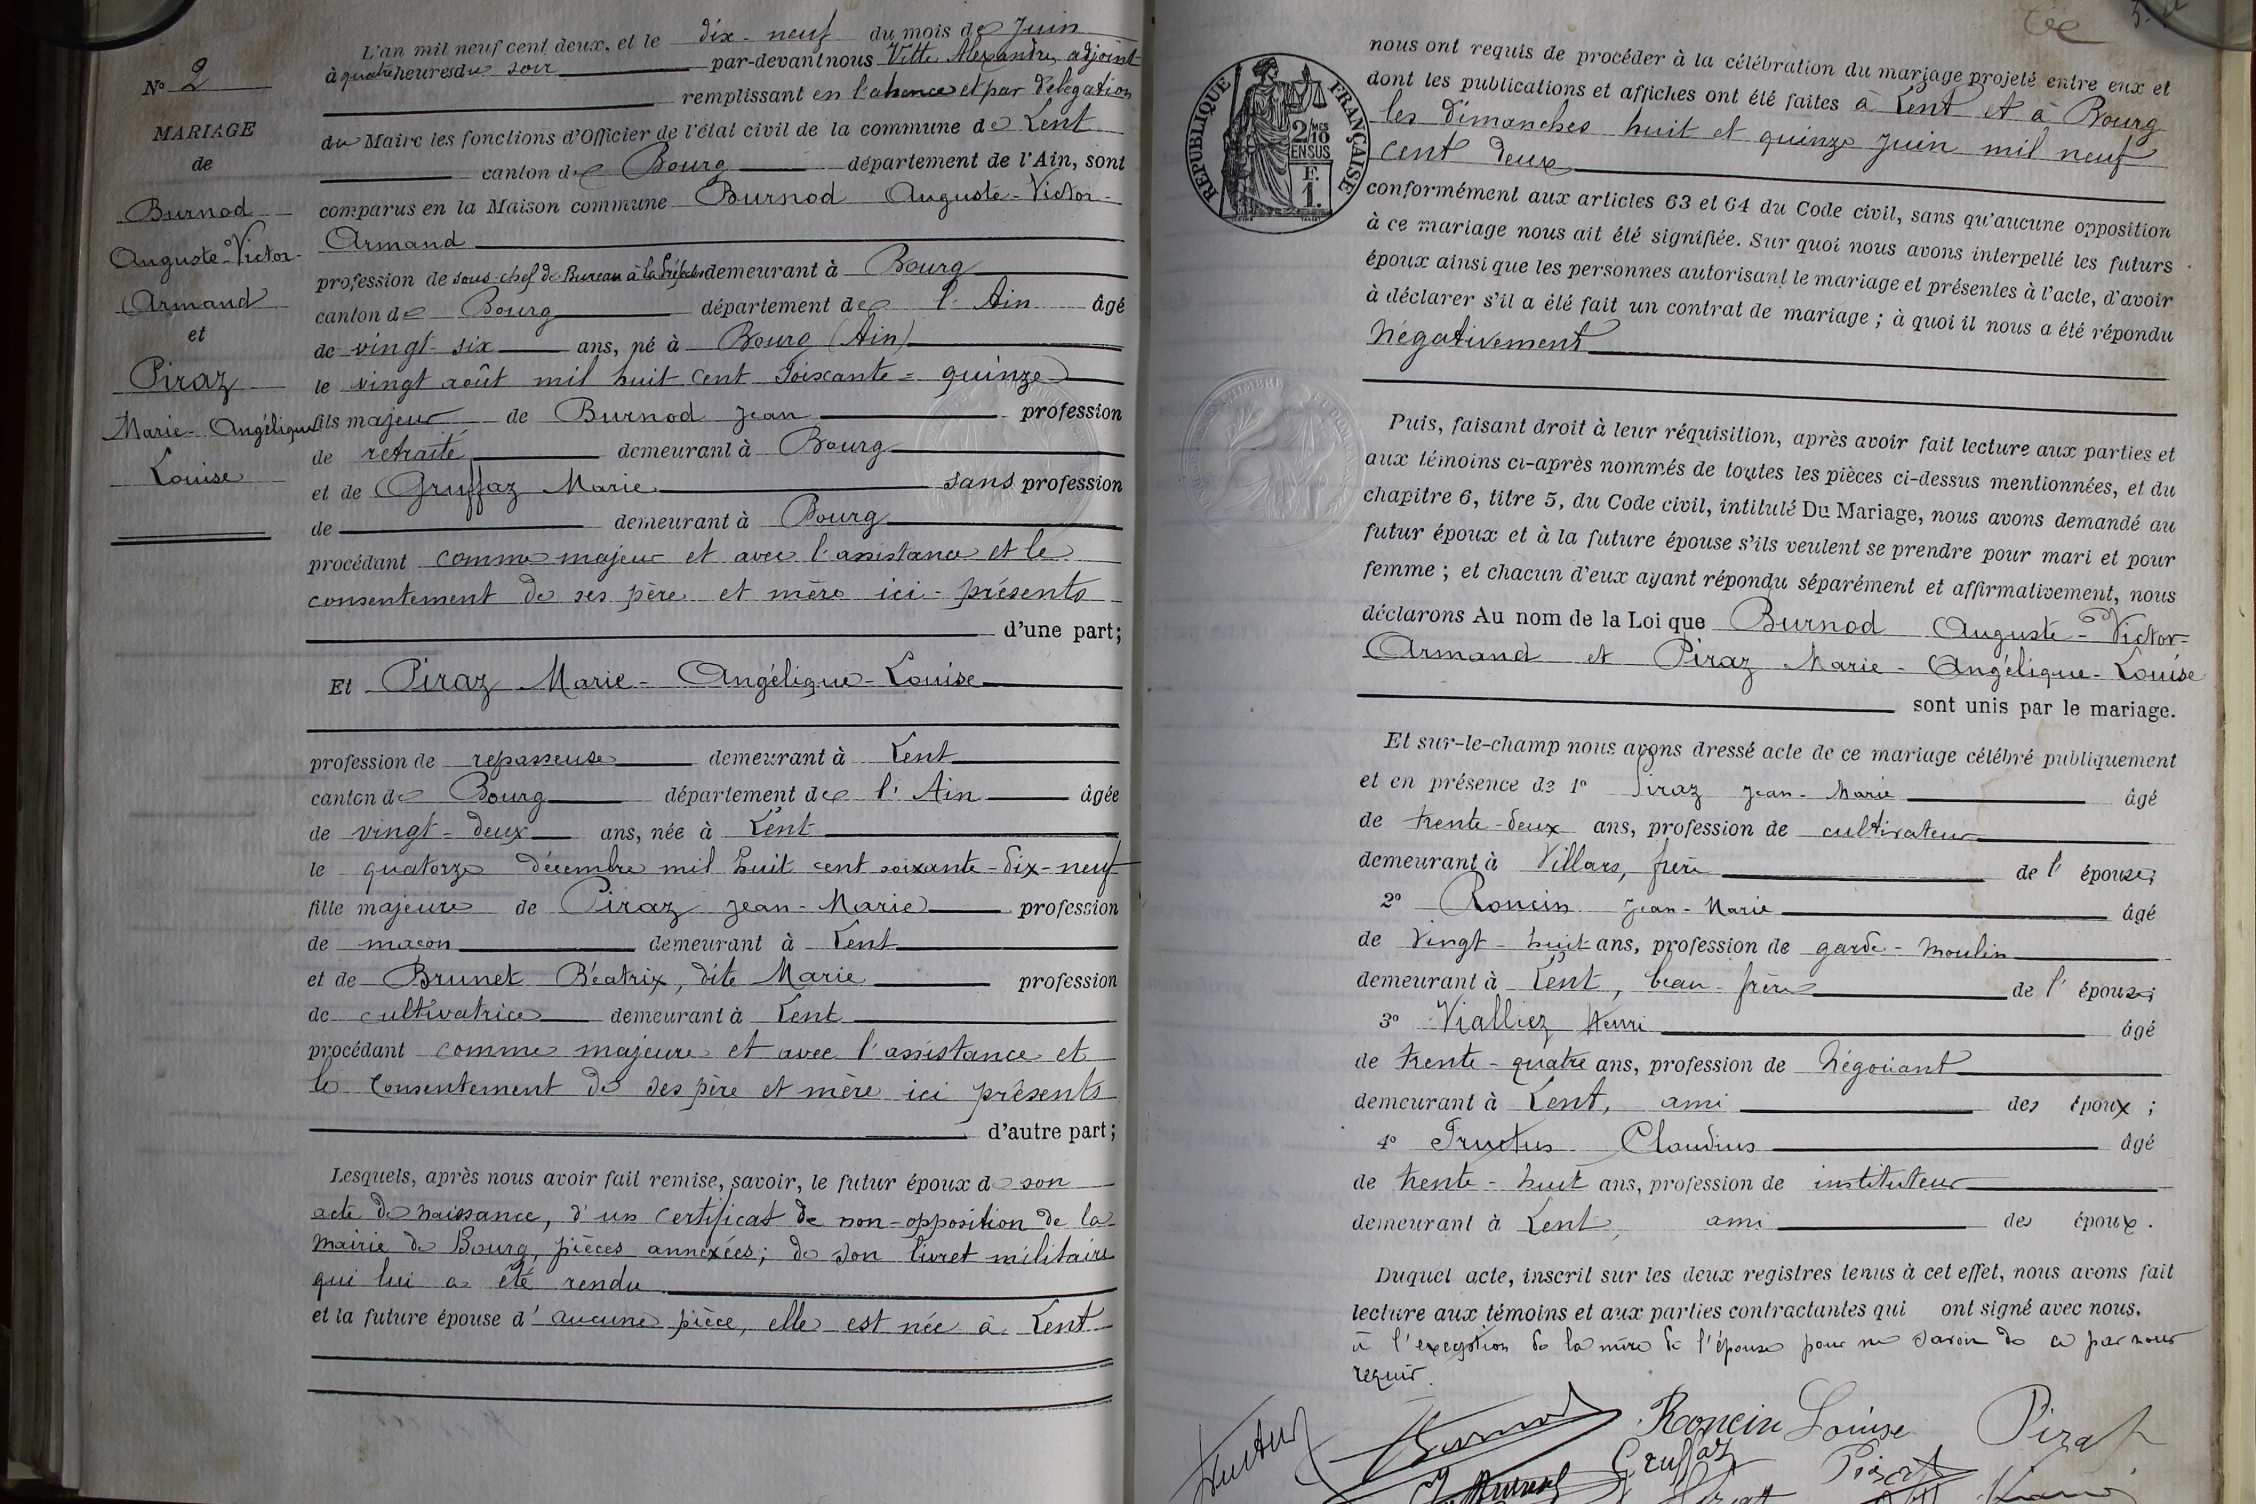 L'an mil neuf cent deux, et le dix-neuf du mois de Juin
à quatre heures du soir par-devant nous Vitte Alexandre, adjoint
remplissant en l'absence et par délégation
du Maire les fonctions d'Officier de l'état civil de la commune de Lent
canton de Bourg département de l'Ain, sont
comparus en la Maison commune Burnod Auguste-Victor-
Armand
profession de sous-chef de Bureau à la Préfecture demeurant à Bourg
canton de Bourg département de l'Ain âgé
de vingt-six ans, né à Bourg (Ain)
le vingt août mil huit cent soixante-quinze
fils majeur de Burnod Jean profession
de retraité demeurant à Bourg
et de Gruffaz Marie sans profession
de demeurant à Bourg
procédant comme majeur et avec l'assistance et le
consentement de ses père et mère ici-présents
d'une part;
Et Piraz Marie-Angélique-Louise
profession de repasseuse demeurant à Lent
canton de Bourg département de l'Ain âgée
de vingt-deux ans, née à Lent
le quatorze décembre mil huit cent soixante-dix-neuf
fille majeure de Piraz Jean-Marie profession
de maçon demeurant à Lent
et de Brunet Béatrix, dite Marie profession
de cultivatrice demeurant à Lent
procédant comme majeure et avec l'assistance et
le consentement de ses père et mère ici présents
d'autre part;
Lesquels, après nous avoir fait remise, savoir, le futur époux de son
acte de naissance, d'un certificat de non-opposition de la
mairie de Bourg, pièces annexées; de son livret militaire
qui lui a été rendu
et la future épouse d'aucune pièce, elle est née à Lent
No 2
MARIAGE
de
Burnod
Auguste-Victor-
Armand
et
Piraz
Marie-Angélique
Louise
RÉPUBLIQUE FRANÇAISE
2/10 MES
EN SUS
F.
1.
nous ont requis de procéder à la célébration du mariage projeté entre eux et
dont les publications et affiches ont été faites à Lent et à Bourg
les dimanches huit et quinze Juin mil neuf
cent deux
conformément aux articles 63 et 64 du Code civil, sans qu'aucune opposition
à ce mariage nous ait été signifiée. Sur quoi nous avons interpellé les futurs
époux ainsi que les personnes autorisant le mariage et présentes à l'acte, d'avoir
à déclarer s'il a été fait un contrat de mariage ; à quoi il nous a été répondu
négativement
Puis, faisant droit à leur réquisition, après avoir fait lecture aux parties et
aux témoins ci-après nommés de toutes les pièces ci-dessus mentionnées, et du
chapitre 6, titre 5, du Code civil, intitulé Du Mariage, nous avons demandé au
futur époux et à la future épouse s'ils veulent se prendre pour mari et pour
femme ; et chacun d'eux ayant répondu séparément et affirmativement, nous
déclarons Au nom de la Loi que Burnod Auguste-Victor-
Armand et Piraz Marie-Angélique-Louise
sont unis par le mariage.
Et sur-le-champ nous avons dressé acte de ce mariage célébré publiquement
et en présence de 1o Piraz Jean-Marie âgé
de trente-deux ans, profession de cultivateur
demeurant à Villars, frère de l'épouse;
2o Roncin Jean-Marie âgé
de vingt-huit ans, profession de garde-moulin
demeurant à Lent, beau-frère de l'épouse;
3o Vialliez Henri âgé
de trente-quatre ans, profession de négociant
demeurant à Lent, ami des époux ;
4o Fructus Claudius âgé
de trente-huit ans, profession de instituteur
demeurant à Lent, ami des époux.
Duquel acte, inscrit sur les deux registres tenus à cet effet, nous avons fait
lecture aux témoins et aux parties contractantes qui ont signé avec nous.
à l'exception de la mère de l'épouse pour ne savoir de ce par nous
requis.
Fructus Burnod Roncin Louise Piraz
J Burnod Gruffaz Piraz